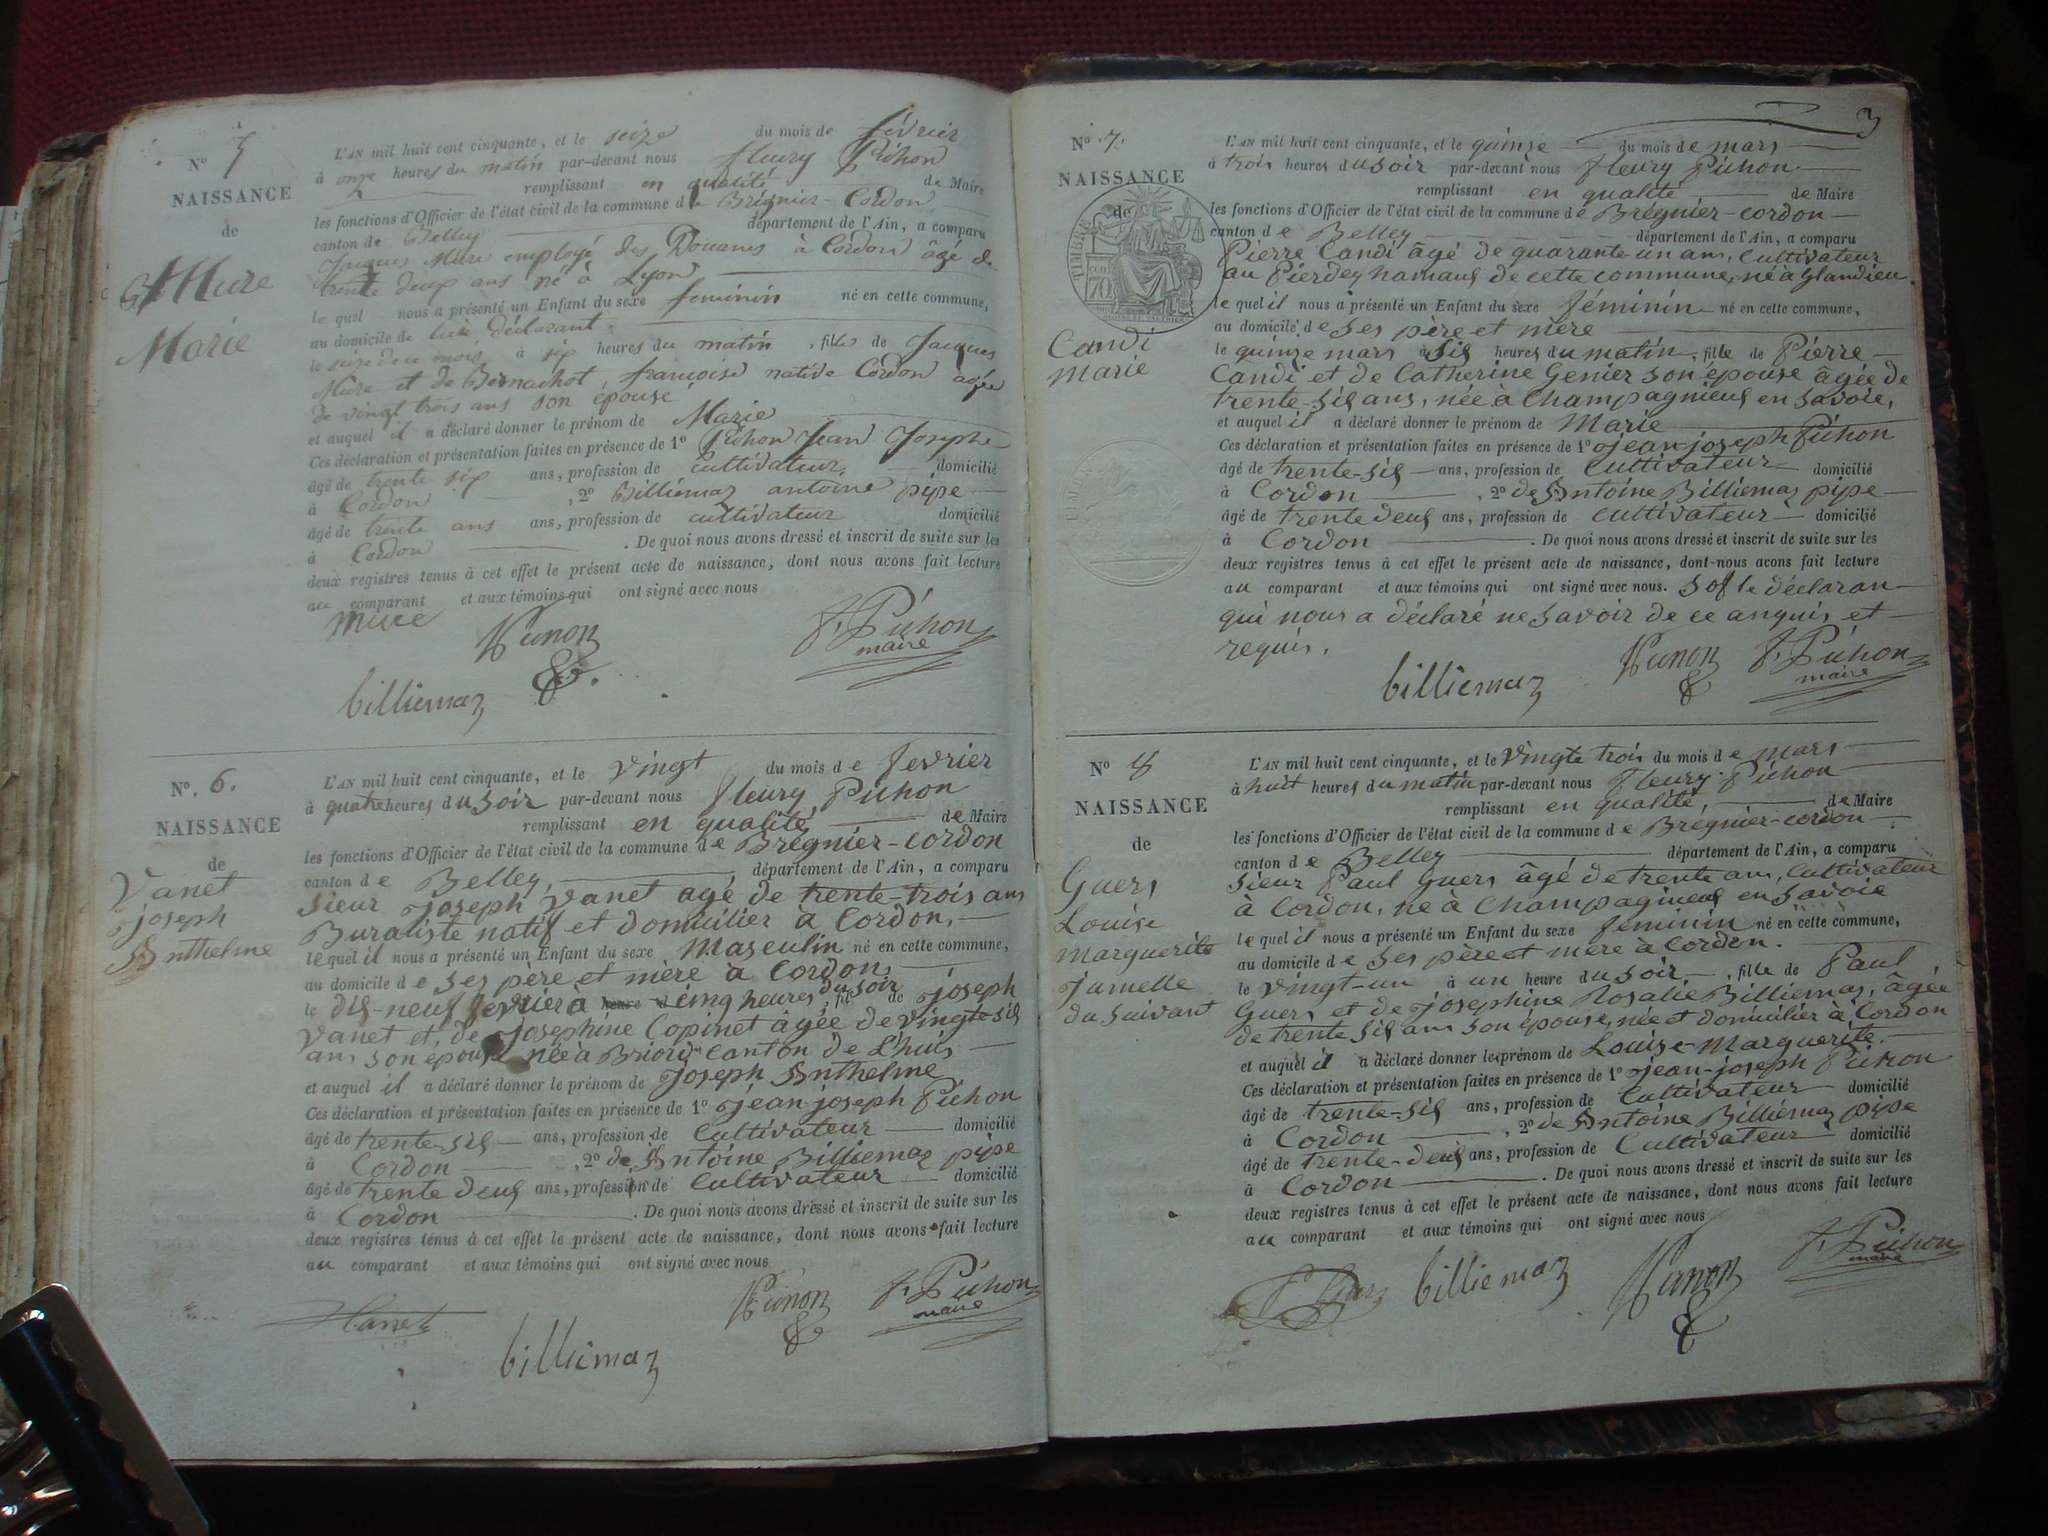 N° 5
NAISSANCE
de
Mure
Marie
L'AN mil huit cent cinquante, et le seize du mois de février
à onze heures du matin par-devant nous fleury Pichon
remplissant en qualité de Maire
les fonctions d'Officier de l'état civil de la commune de Brégnier-Cordon
canton de Belley département de l'Ain, a comparu
Jacques Mure employé des Douanes à Cordon âgé de
trente deux ans né à Lyon
le quel nous a présenté un Enfant du sexe feminin né en cette commune,
au domicile de lui déclarant
le seize de ce mois à six heures du matin, fille de Jacques
Mure et de Bernachot, françoise native Cordon agée
de vingt trois ans son épouse
et auquel il a déclaré donner le prénom de Marie
Ces déclaration et présentation faites en présence de 1° Pichon Jean Joseph
âgé de trente six ans, profession de Cultivateur, domicilié
à Cordon, 2° Billiemaz antoine pipe
âgé de trente ans ans, profession de cultivateur domicilié
à Cordon. De quoi nous avons dressé et inscrit de suite sur les
deux registres tenus à cet effet le présent acte de naissance, dont nous avons fait lecture
au comparant et aux témoins qui ont signé avec nous
mure
F. Pichon
maire
billiemaz
N°. 6.
NAISSANCE
de
Vanet
joseph
Anthelme
L'AN mil huit cent cinquante, et le vingt du mois de fevrier
à quatre heures du soir par-devant nous fleury Pichon
remplissant en qualité de Maire
les fonctions d'Officier de l'état civil de la commune de Brégnier-cordon
canton de Belley, département de l'Ain, a comparu
Sieur joseph Vanet agé de trente-trois ans
Buraliste natif et domicilier à Cordon,
lequel il nous a présenté un Enfant du sexe Masculin né en cette commune,
au domicile de ses père et mère à Cordon,
le dis-neuf fevrier à heure d cinq heures du soir, fils de joseph
Vanet et, de josephine Copinet âgée de vingt-sis
ans son épouse née à Briord canton de L'huis
et auquel il a déclaré donner le prénom de joseph Anthelme
Ces déclaration et présentation faites en présence de 1° jean joseph Pichon
âgé de trente-sis ans, profession de Cultivateur domicilié
à Cordon, 2° de Antoine Billiemaz pipe
âgé de trente deus ans, profession de Cultivateur domicilié
à Cordon. De quoi nous avons dressé et inscrit de suite sur les
deux registres tenus à cet effet le présent acte de naissance, dont nous avons fait lecture
au comparant et aux témoins qui ont signé avec nous
Vanet
F. Pichon
maire
billiemaz
3
N° 7.
NAISSANCE
de
TIMBRE
70
Candi
Marie
L'AN mil huit cent cinquante, et le quinse du mois de mars
à trois heures du soir par-devant nous fleury Pichon
remplissant en qualité de Maire
les fonctions d'Officier de l'état civil de la commune de Brégnier-cordon
canton de Belley département de l'Ain, a comparu
Pierre Candi âgé de quarante un ans, Cultivateur
au Pierdey hamaus de cette commune, né à glandieu
le quel il nous a présenté un Enfant du sexe féminin né en cette commune,
au domicile de ses père et mère
le quinse mars à sis heures du matin, fille de Pierre
Candi et de Catherine Genier son épouse âgée de
trente-sis ans, née à Champagnieus en Savoie,
et auquel il a déclaré donner le prénom de Marie
Ces déclaration et présentation faites en présence de 1° jean joseph Pichon
âgé de trente-sis ans, profession de Cultivateur domicilié
à Cordon, 2° de Antoine Billiemaz pipe
âgé de trente deus ans, profession de cultivateur domicilié
à Cordon. De quoi nous avons dressé et inscrit de suite sur les
deux registres tenus à cet effet le présent acte de naissance, dont nous avons fait lecture
au comparant et aux témoins qui ont signé avec nous. sof le déclaran
qui nous a déclaré ne savoir de ce anquis et
requis.
billiemaz
F. Pichon
maire
N° 8
NAISSANCE
de
Guers
Louise
marguerite
jumelle
du suivant
L'AN mil huit cent cinquante, et le vingte trois du mois de mars
à huit heures du matin par-devant nous fleury Pichon
remplissant en qualité, de Maire
les fonctions d'Officier de l'état civil de la commune de Brégnier-cordon
canton de Belley département de l'Ain, a comparu
sieur Paul Guers âgé de trente ans, Cultivateur
à Cordon, né à Champagnieus en Savoie
lequel il nous a présenté un Enfant du sexe féminin né en cette commune,
au domicile de ses père et mère à Cordon.
le vingt-un à un heure du soir, fille de Paul
Guers et de josephine Rosalie Billiemaz, âgée
de trente sis ans son épouse, née et domicilier à Cordon
et auquel il a déclaré donner les prénom de Louise-Marguerite.
Ces déclaration et présentation faites en présence de 1° jean-joseph Pichon
âgé de trente-sis ans, profession de Cultivateur domicilié
à Cordon, 2° de Antoine Billiémaz pipe
âgé de trente-deus ans, profession de Cultivateur domicilié
à Cordon. De quoi nous avons dressé et inscrit de suite sur les
deux registres tenus à cet effet le présent acte de naissance, dont nous avons fait lecture
au comparant et aux témoins qui ont signé avec nous
billiemaz
F. Pichon
maire